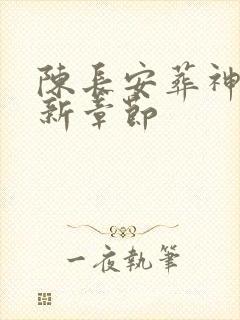 陳長安葬神
新章節
一夜執筆